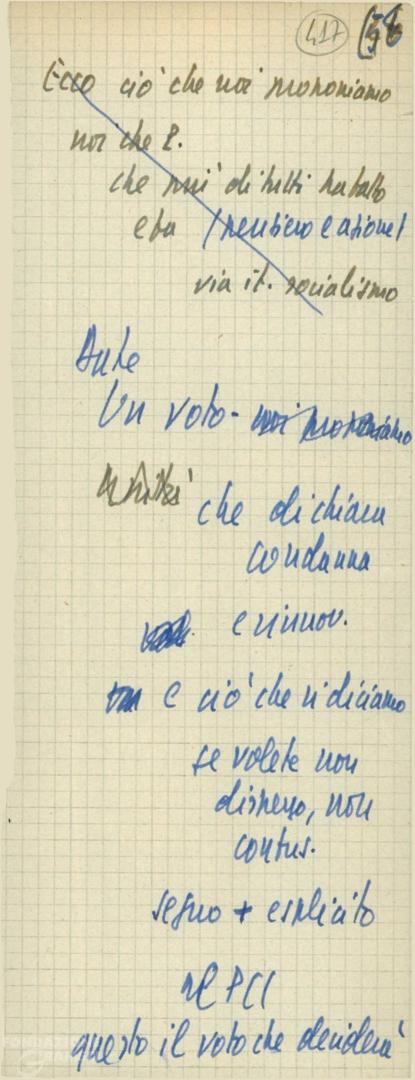 417 56
Ecco ciò che noi proponiamo
noi che P.
che più di tutti ha fatto
e fa (pensiero e azione)
via it. socialismo
Ante
Un voto - noi proponiamo
che dichiara
condanna
e rinnov.
e ciò che vi diciamo
se volete non
dispers, non
confus.
segno + esplicito
al PCI
questo il voto che deciderà